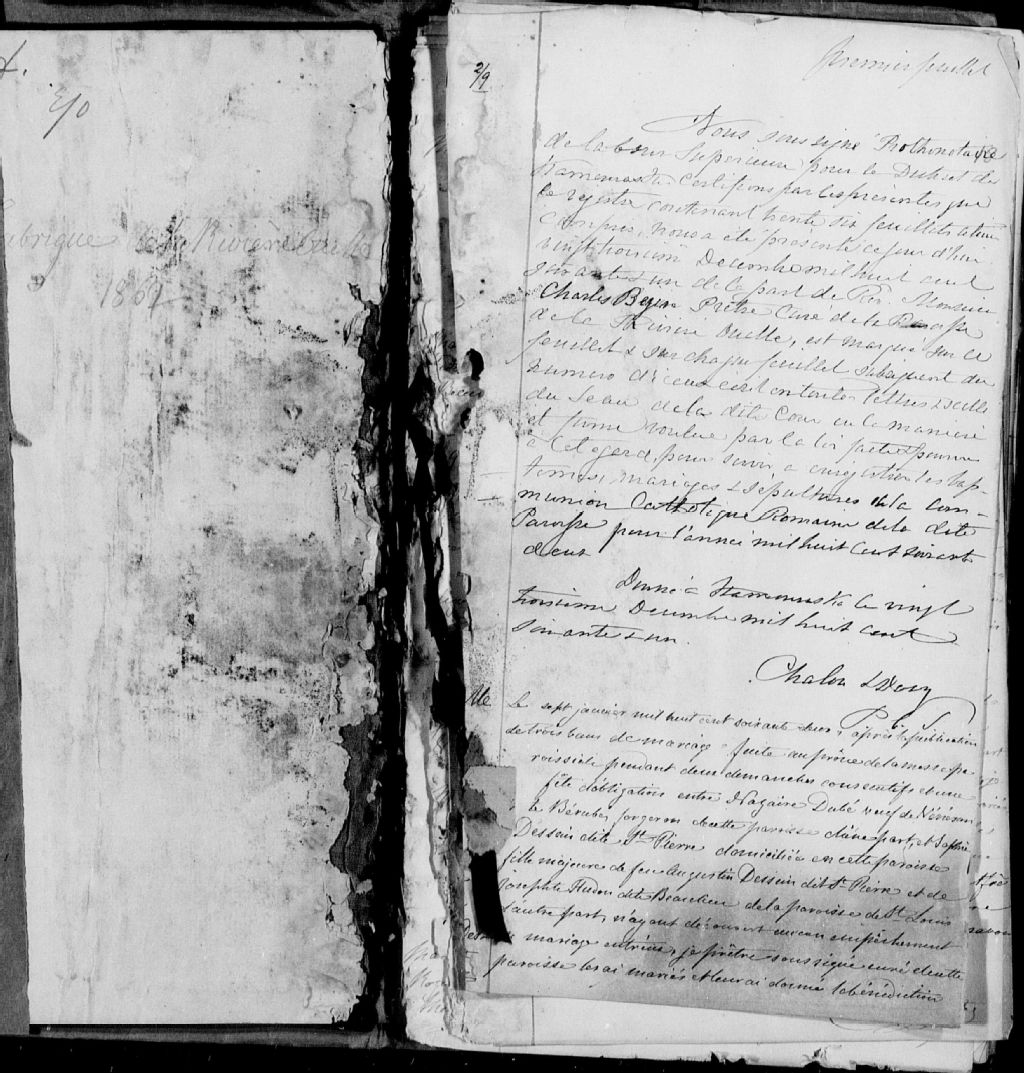 Fabrique de la Rivière Ouelle
1862
2/9
premier feuillet
Nous soussigné Prothonotaire
de la Cour Supérieure pour le District de
Kamouraska certifions par les présentes que
le registre contenant trente six feuillets celui ci
compris, nous a été présenté ce jour d'hui
vingt troisième Decembre mil huit cent
soixante & un de la part de Rév. Monsieur
Charles Begin Prêtre Curé de la Paroisse
de la Rivière Ouelle, est marqué sur ce
feuillet & sur chaque feuillet subséquent du
numero d'iceux ecrit en toutes lettres & scellé
du Sceau de la dite Cour en la manière
et forme voulue par la loi faite & pourvue
à cet égard, pour servir a enregistrer les bap-
temes, mariages & sépultures de la Com-
munion Catholique Romaine de la dite
Paroisse pour l'année mil huit Cent soixante
deux
Donné à Kamouraska le vingt
troisieme Decembre mil huit cent
soixante & un.
Chalou & Dery
P. C. S.
Le sept janvier mil huit cent soixante deux, après la publication
de trois bans de mariage faite au prône de la messe pa
roissiale pendant deux dimanches consecutifs et une
fête d'obligation entre Nazaire Dubé veuf de Névérin
le Bérubé, forgeron de cette paroisse d'une part, et Sophie
Dessein dite St Pierre domiciliée en cette paroisse
fille majeure de feu Augustin Dessein dit St Pierre et de
Josephte Hudon dite Beaulieu de la paroisse de St Louis
d'autre part, n'ayant découvert aucun empêchement
de mariage entr'eux, je prêtre soussigné curé de cette
paroisse les ai mariés et leur ai donné la bénédiction